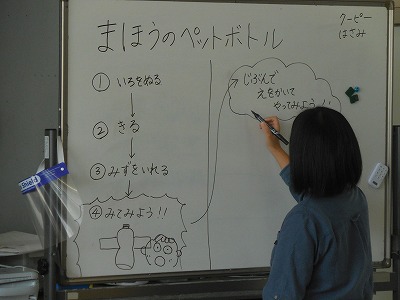 まほうのペットボトル
① いろをぬる
② きる
③ みずをいれる
④ みてみよう!!
じぶんで
えをかいて
やってみよう!!
クーピー
はさみ